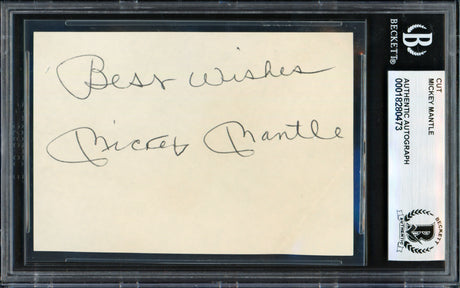 Best Wishes
Mickey Mantle
BECKETT®
CUT
MICKEY MANTLE
AUTHENTIC AUTOGRAPH
00018280473
BECKETT
AUTHENTIC